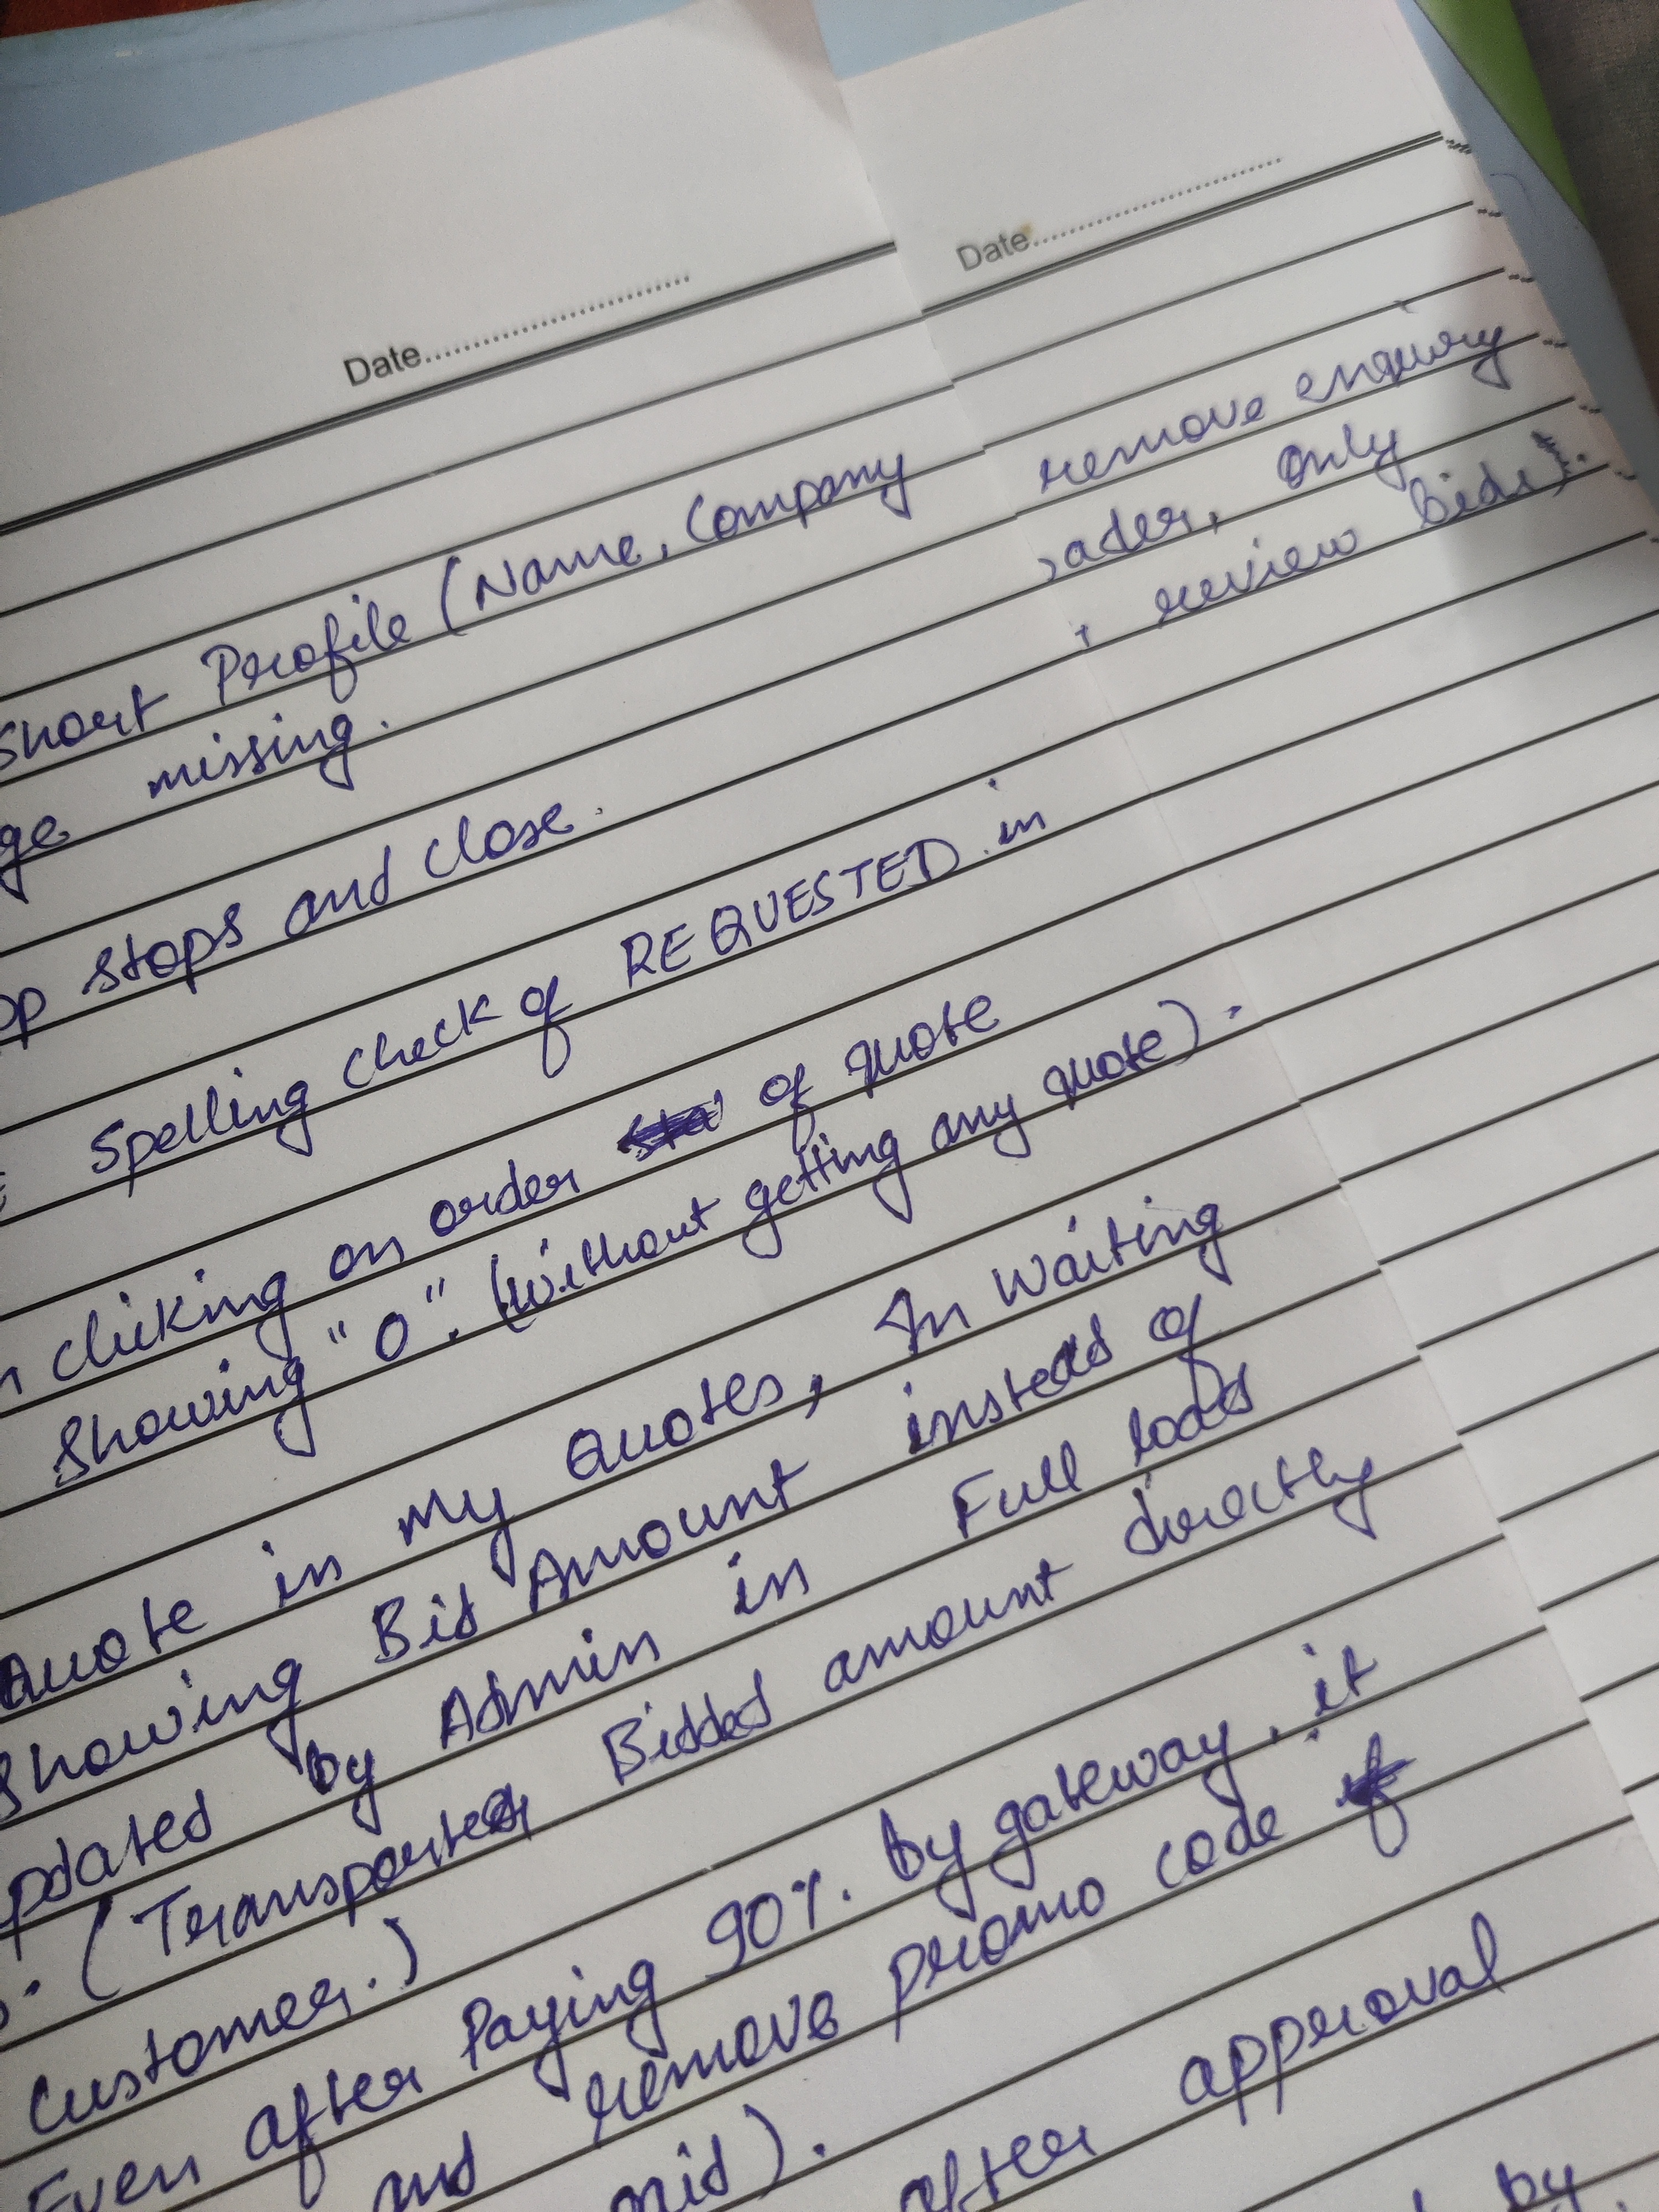 Date
short Profile (Name, Company
ge missing.
op stops and close.
Spelling check of REQUESTED in
n clicking on order of quote
showing "0". (without getting any quote).
Quote in my Quotes, In waiting
showing Bid Amount instead of
pdated by Admin in Full loads
(Transporter Bidded amount directly
customer.)
Even after Paying 90%. by gateway, it
and remove promo code
aid).
after approval
by
Date
remove enquiry
ader, only
review bids).